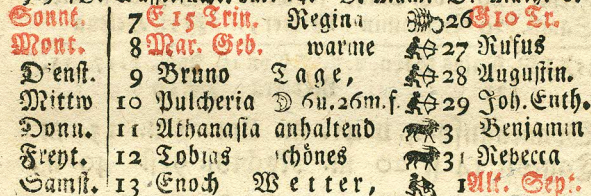 Sonnt. 7 E 15 Trin. Regina 26 G 10 Tr.
Mont. 8 Mar. Geb. warme 27 Rufus
Dienst. 9 Bruno Tage, 28 Augustin.
Mittw 10 Pulcheria 6 u. 26 m. f. 29 Joh. Enth.
Donn. 11 Athanasia anhaltend 3 Benjamin
Freyt. 12 Tobias schönes 31 Rebecca
Samst. 13 Enoch Wetter, 1 Alt. Sept.